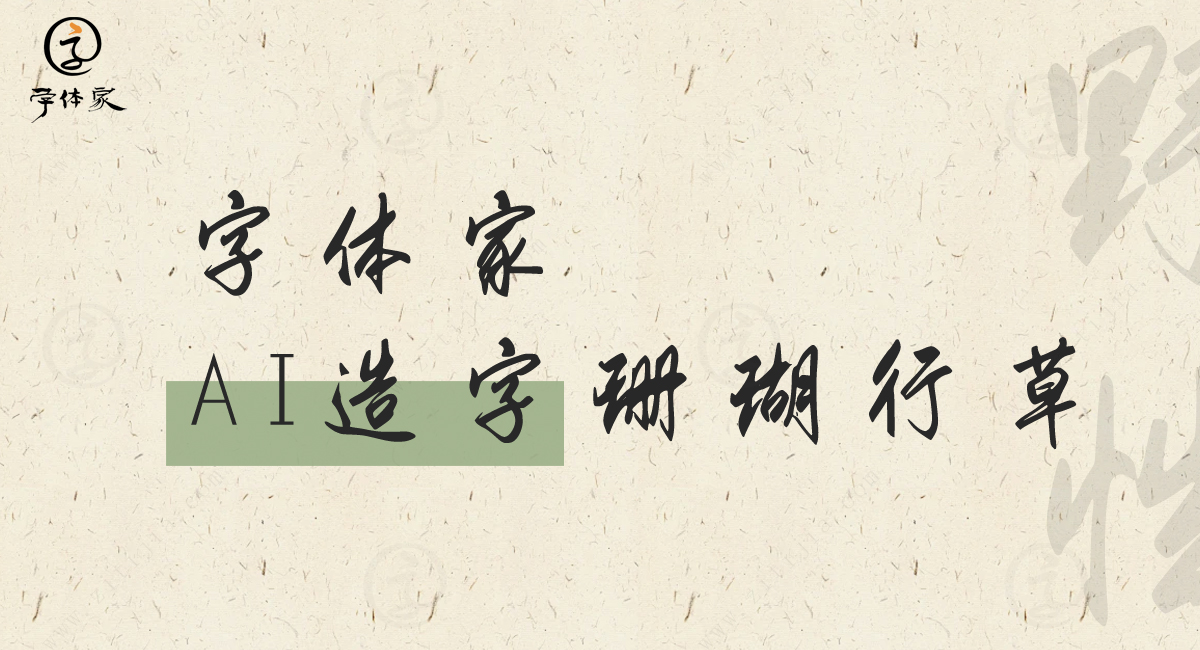 字
字体家
字体家
AI造字珊瑚行草
野
性